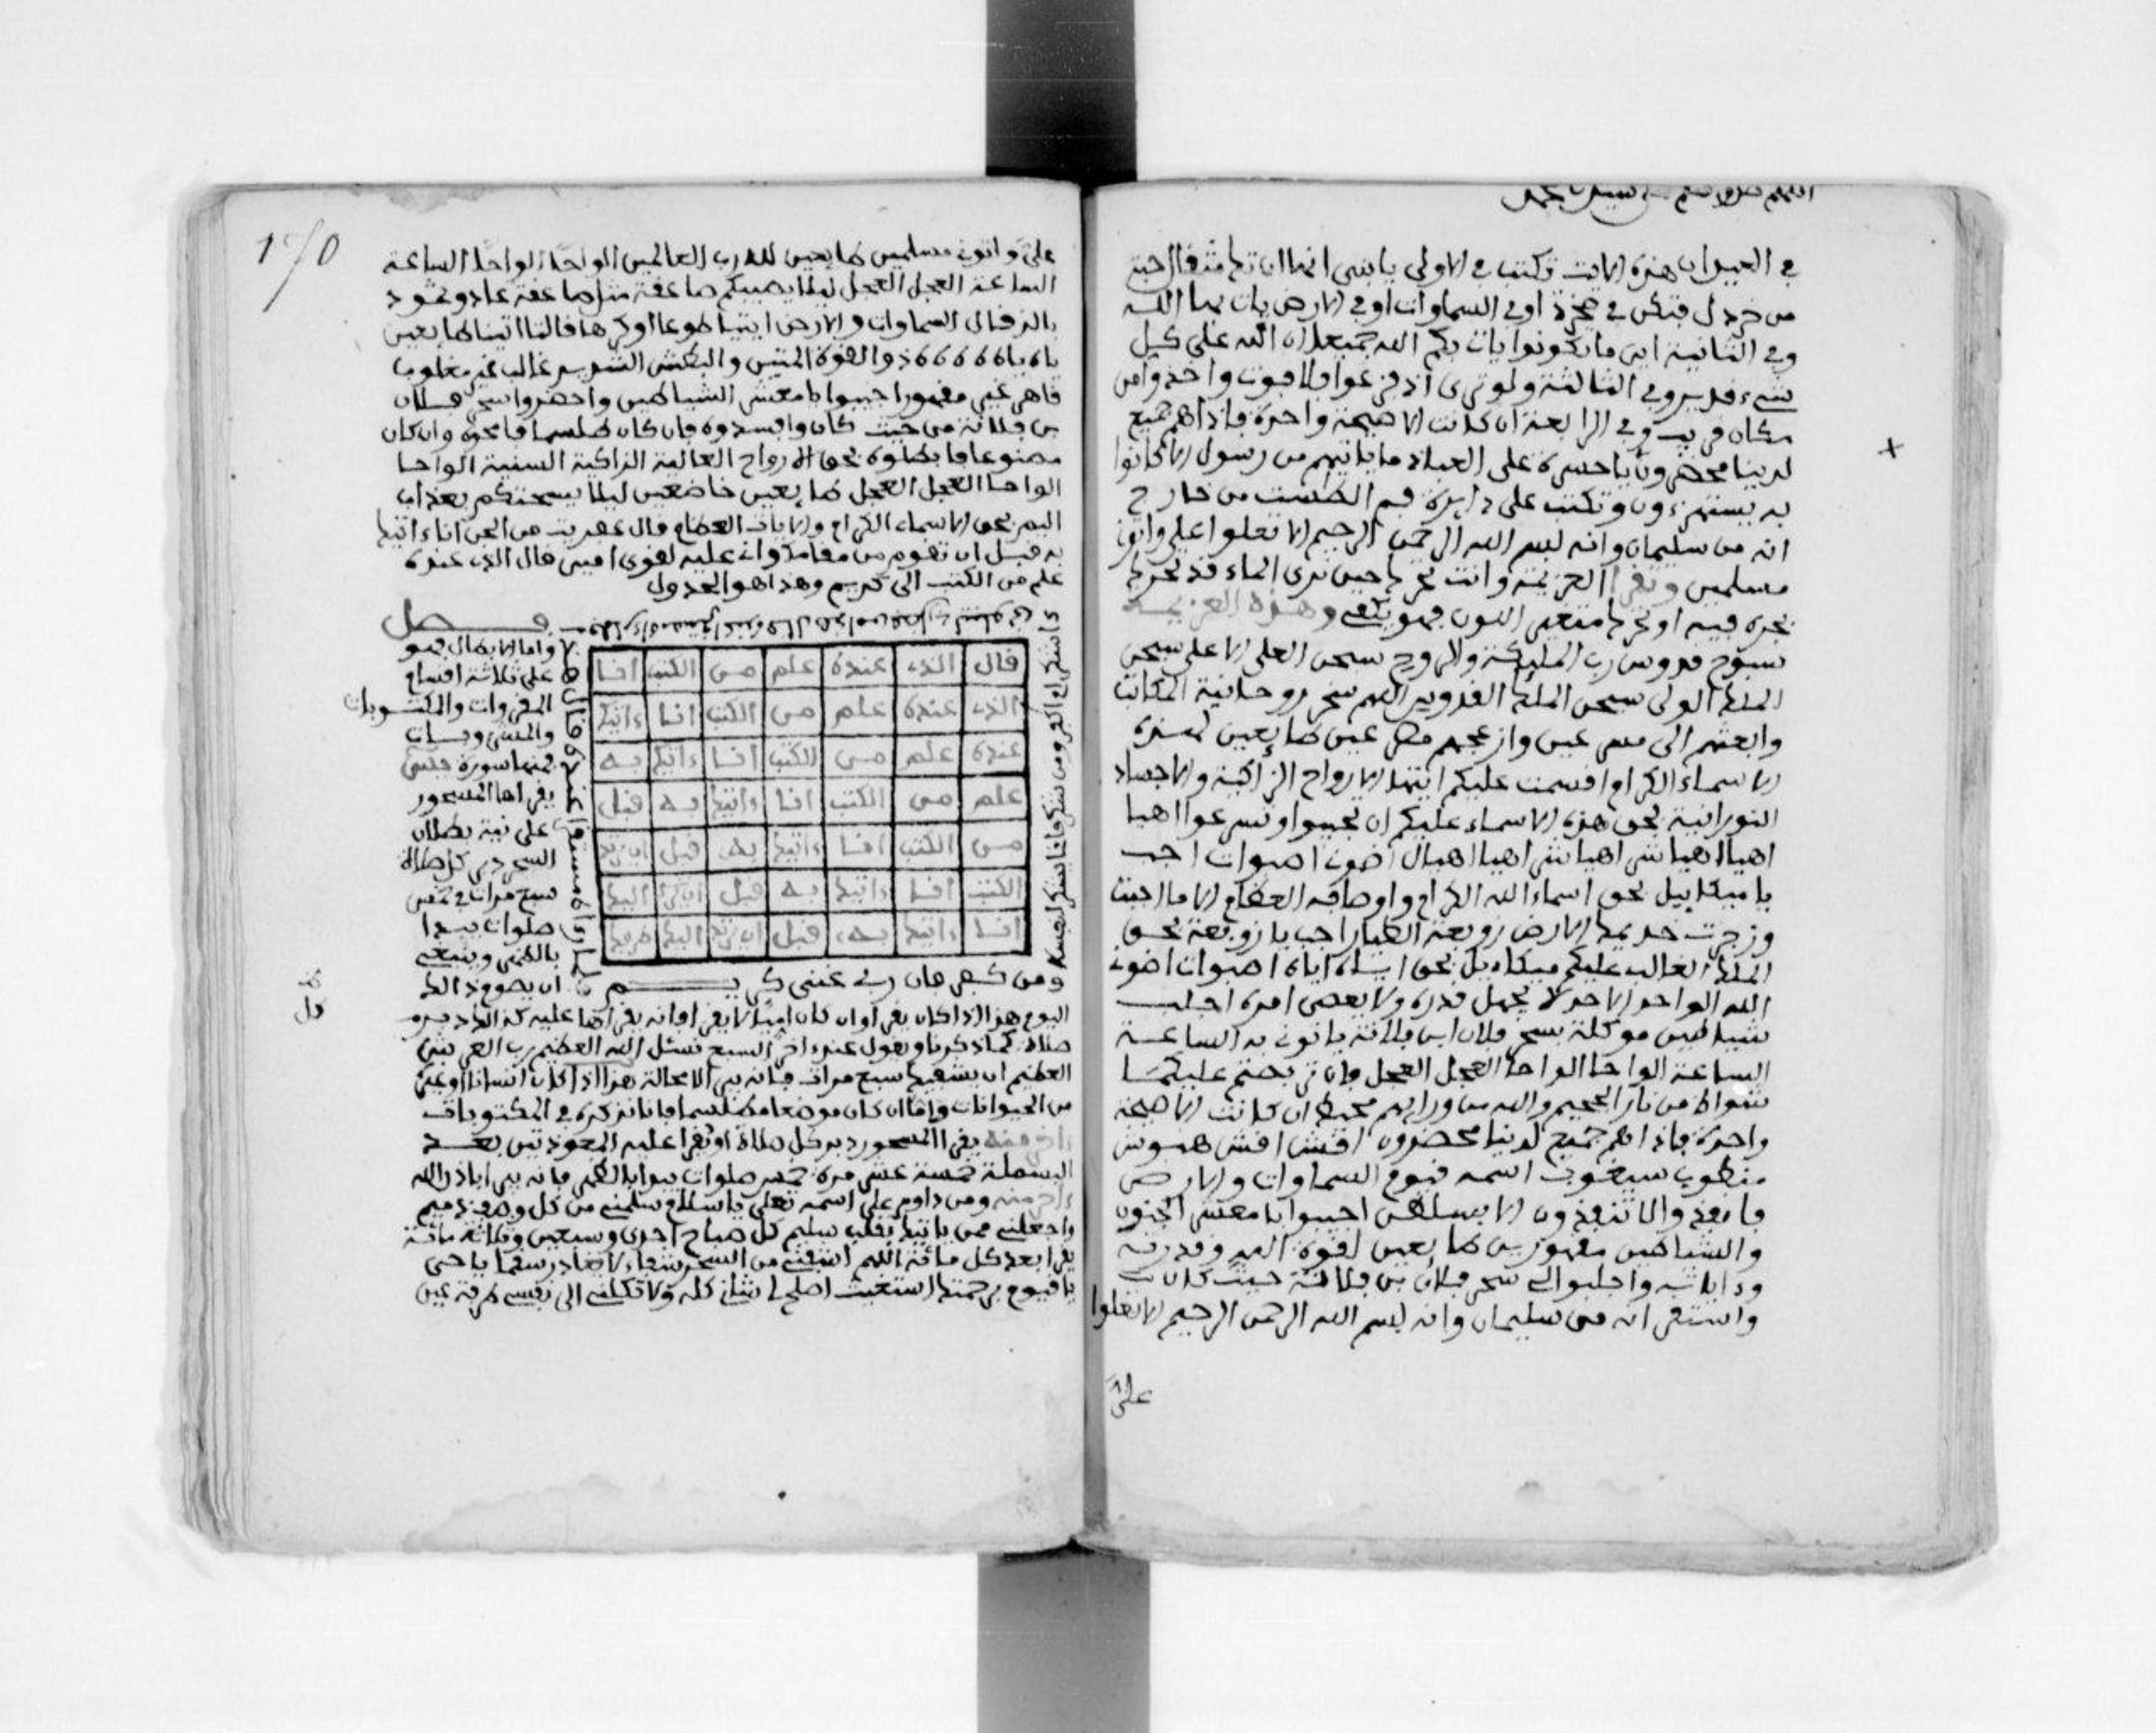 اللهم صل وسلم على سيدنا محمد
في العيدان هذه الايت تكتب في الاولى يا بني انها ان تك مثقال حبة
من خردل فتكن في صخرة او في السماوات او في الارض يات بها الله
وفي الثانية اين ما تكونوا يات بكم الله جميعا ان الله على كل
شيء قدير وفي الثالثة ولو ترى اذ فزعوا فلا فوت واخذوا من
مكان قريب وفي الرابعة ان كانت الا صيحة واحدة فاذا هم جميع
لدينا محضرون يا حسرة على العباد ما ياتيهم من رسول الا كانوا
به يستهزءون وتكتب على دايرة فم الطست من خارج
انه من سليمان وانه بسم الله الرحمن الرحيم الا تعلوا علي واتوني
مسلمين وتقرا العزيمة وانت تحركها حين ترى الماء قد تحرك
تجده فيه او تحركها متغير اللون فهو يكفي وهذه العزيمة
سبوح قدوس رب المليكة والروح سبحن العلي الاعلى سبحن
الملك الولي سبحن الملك القدوس اللهم سخر روحانية المكاتب
وابعثهم الى من عين وازعجهم من عين طايعين لهذه
الاسماء الكرام اقسمت عليكم ايتها الارواح الزاكية والاجساد
النورانية بحق هذه الاسماء عليكم ان تجيبوا وتسرعوا اهيا
اهيا اهيا شر اهيا شر اهيا اهيال اضوت اصبوات اجب
يا ميكاييل بحق اسماء الله الكرام واوصافه العظام الا ما اجبت
وزجرت خديمك الارض زوبعة الطيار اجب يا زوبعة بحق
الملك الغالب عليكم ميكاءيل بحق اياه اياه اصبوات اضوت
الله الواحد الاحد لا يجهل قدره ولا يعصى امره اجلب
شياطين موكلة بسحر فلان ابن فلانة ياتون به الساعة
الساعة الواحا الواحا العجل العجل فان تربصتم عليكما
شواظ من نار الجحيم والله من ورايهم محيط ان كانت الا صيحة
واحدة فاذا هم جميع لدينا محضرون اقش اقش هيوش
اسمه قيوم السماوات والارض
فانفذوا لا تنفذون الا بسلطن اجيبوا يا معشر الجنون
والشياطين مقهورين طايعين لقوة الله وقدرته
وءاياته واجلبوا لي سحر فلان بن فلانة حيث كان
واستقر انه من سليمان وانه بسم الله الرحمن الرحيم الا تعلوا
علي
170
علي واتوني مسلمين طايعين لله رب العالمين الواحا الواحا الساعة
الساعة العجل العجل ليلا يصيبكم صاعقة مثل صاعقة عاد وثمود
بالذي قال السماوات والارض ايتيا طوعا او كرها قالتا اتينا طايعين
ياه ياه ذو القوة المتين والبطش الشديد غالب غير مغلوب
قاهر غير مقهور اجيبوا يا معشر الشياطين واحضروا سحر فلان
بن فلانة من حيث كان وافسدوه فان كان طلسما فامحوه وان كان
مصنوعا فابطلوه بحق الارواح العالية الزاكية السنية الواحا
الواحا العجل العجل طايعين خاضعين ليلا يسحتكم بعذاب
اليم بحق الاسماء الكرام والايات العظام قال عفريت من الجن انا ءاتيك
به قبل ان تقوم من مقامك واني عليه لقوي امين قال الذي عنده
علم من الكتب الى كريم وهذا هو الجدول
فصل
قال الذي عنده علم من الكتب انا
الذي عنده علم من الكتب انا ءاتيك
عنده علم من الكتب انا ءاتيك به
علم من الكتب انا ءاتيك به قبل
من الكتب انا ءاتيك به قبل ان يرتد
الكتب انا ءاتيك به قبل ان يرتد اليك
انا ءاتيك به قبل ان يرتد اليك طرفك
ومن كفر فان ربي غني كريم
ءاشكر ام اكفر ومن شكر فانما يشكر لنفسه
واما الابطال فهو
على ثلاثة اقسام
المقروات والمكتوبات
والمشروبات
فمنها سورة
يقراها المسحور
على نية بطلان
السحر دبر كل صلاة
سبع مرات في خمس
صلوات يبدا
بالظهر وينبغي
ان يصوم ذالك
اليوم هذا اذا كان يقرا وان كان اميا لا يقرا فانه يقراها عليه كذالك دبر
صلاة كما ذكرنا ويقول عند اخر السبع نسئل الله العظيم رب العرش
العظيم ان يشفيك سبع مرات فانه يبرا لا محالة هذا اذا كان انسانا او غيره
من الحيوانات واما ان كان موضعا مطلسما فانا نذكره في المكتوبات
ءاخر منه يقرا المسحور دبر كل صلاة او تقرا عليه المعوذتين بعد
البسملة خمسة عشر مرة خمس صلوات يبدا بالظهر فانه يبرا باذن الله
ءاخر منه ومن داوم على اسمه تعلى يا سلام سلمني من كل وصف ذميم
واجعلني ممن ياتيك بقلب سليم كل صباح احدى وسبعين وثلاثة مائة
يقرا بعد كل مائة اللهم اشفني من السحر شفاء لا يغادر سقما يا حي
يا قيوم برحمتك استغيث اصلح لي شاني كله ولا تكلني الى نفسي طرفة عين